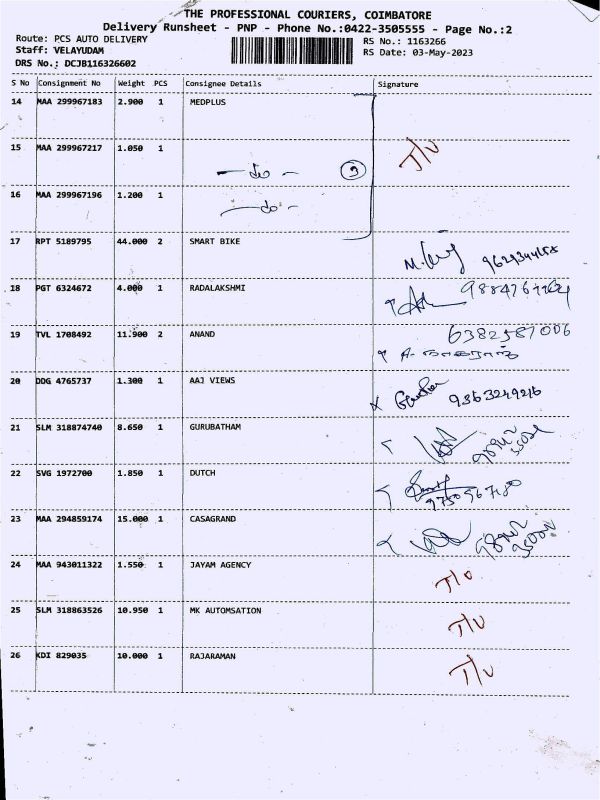 THE PROFESSIONAL COURIERS, COIMBATORE
Delivery Runsheet - PNP - Phone No.:0422-3505555 - Page No.:2
Route: PCS AUTO DELIVERY
RS No.: 1163266
Staff: VELAYUDAM
RS Date: 03-May-2023
DRS No.: DCJB116326602
S No Consignment No Weight PCS Consignee Details Signature
14 MAA 299967183 2.900 1 MEDPLUS
15 MAA 299967217 1.050 1 T/U
— do — 3
16 MAA 299967196 1.200 1
— do —
17 RPT 5189795 44.000 2 SMART BIKE
18 PGT 6324672 4.000 1 RADALAKSHMI
19 TVL 1708492 11.900 2 ANAND 6382587006
20 DDG 4765737 1.300 1 AAJ VIEWS 9363249216
21 SLM 318874740 8.650 1 GURUBATHAM
22 SVG 1972700 1.850 1 DUTCH
9750567180
23 MAA 294859174 15.000 1 CASAGRAND
24 MAA 943011322 1.550 1 JAYAM AGENCY T/U
25 SLM 318863526 10.950 1 MK AUTOMSATION T/U
26 KDI 829035 10.000 1 RAJARAMAN T/U